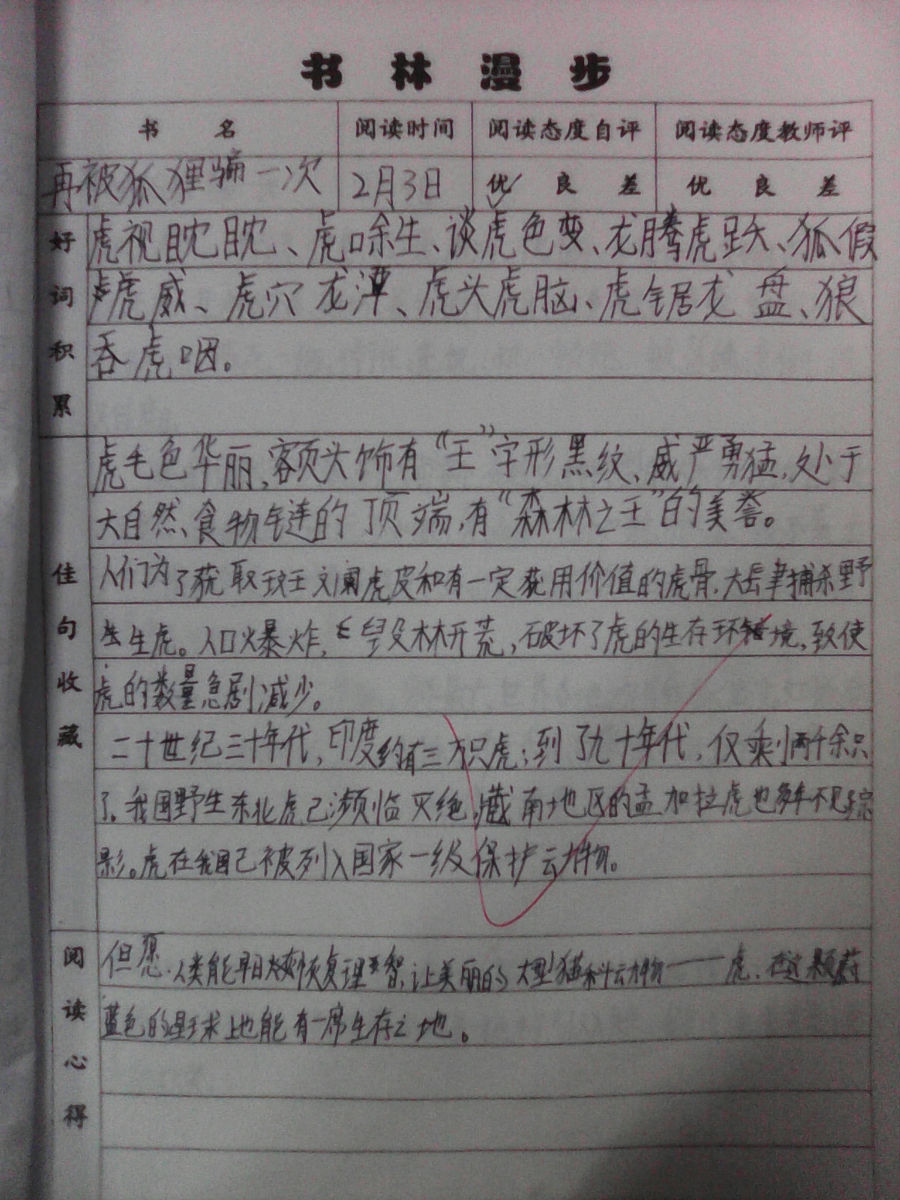 书林漫步
书名 阅读时间 阅读态度自评 阅读态度教师评
再被狐狸骗一次 2月3日 优 良 差 优 良 差
好词积累
虎视眈眈、虎口余生、谈虎色变、龙腾虎跃、狐假
虎威、虎穴龙潭、虎头虎脑、虎锯龙盘、狼
吞虎咽。
佳句收藏
虎毛色华丽,额头饰有“王”字形黑纹、威严勇猛,处于
大自然食物链的顶端,有“森林之王”的美誉。
人们为了获取斑斓虎皮和有一定药用价值的虎骨,大肆捕杀野
生虎。人口火暴炸,毁林开荒,破坏了虎的生存环境,致使
虎的数量急剧减少。
二十世纪三十年代,印度约有三万只虎;到了九十年代,仅剩两千余只
了。我国野生东北虎已濒临灭绝,藏南地区的孟加拉虎也多年不见踪
影。虎在我国已被列入国家一级保护动物。
阅读心得
但愿,人类能早日恢复理智,让美丽的大型猫科动物——虎,在这颗蔚
蓝色的星球上也能有一席生存之地。